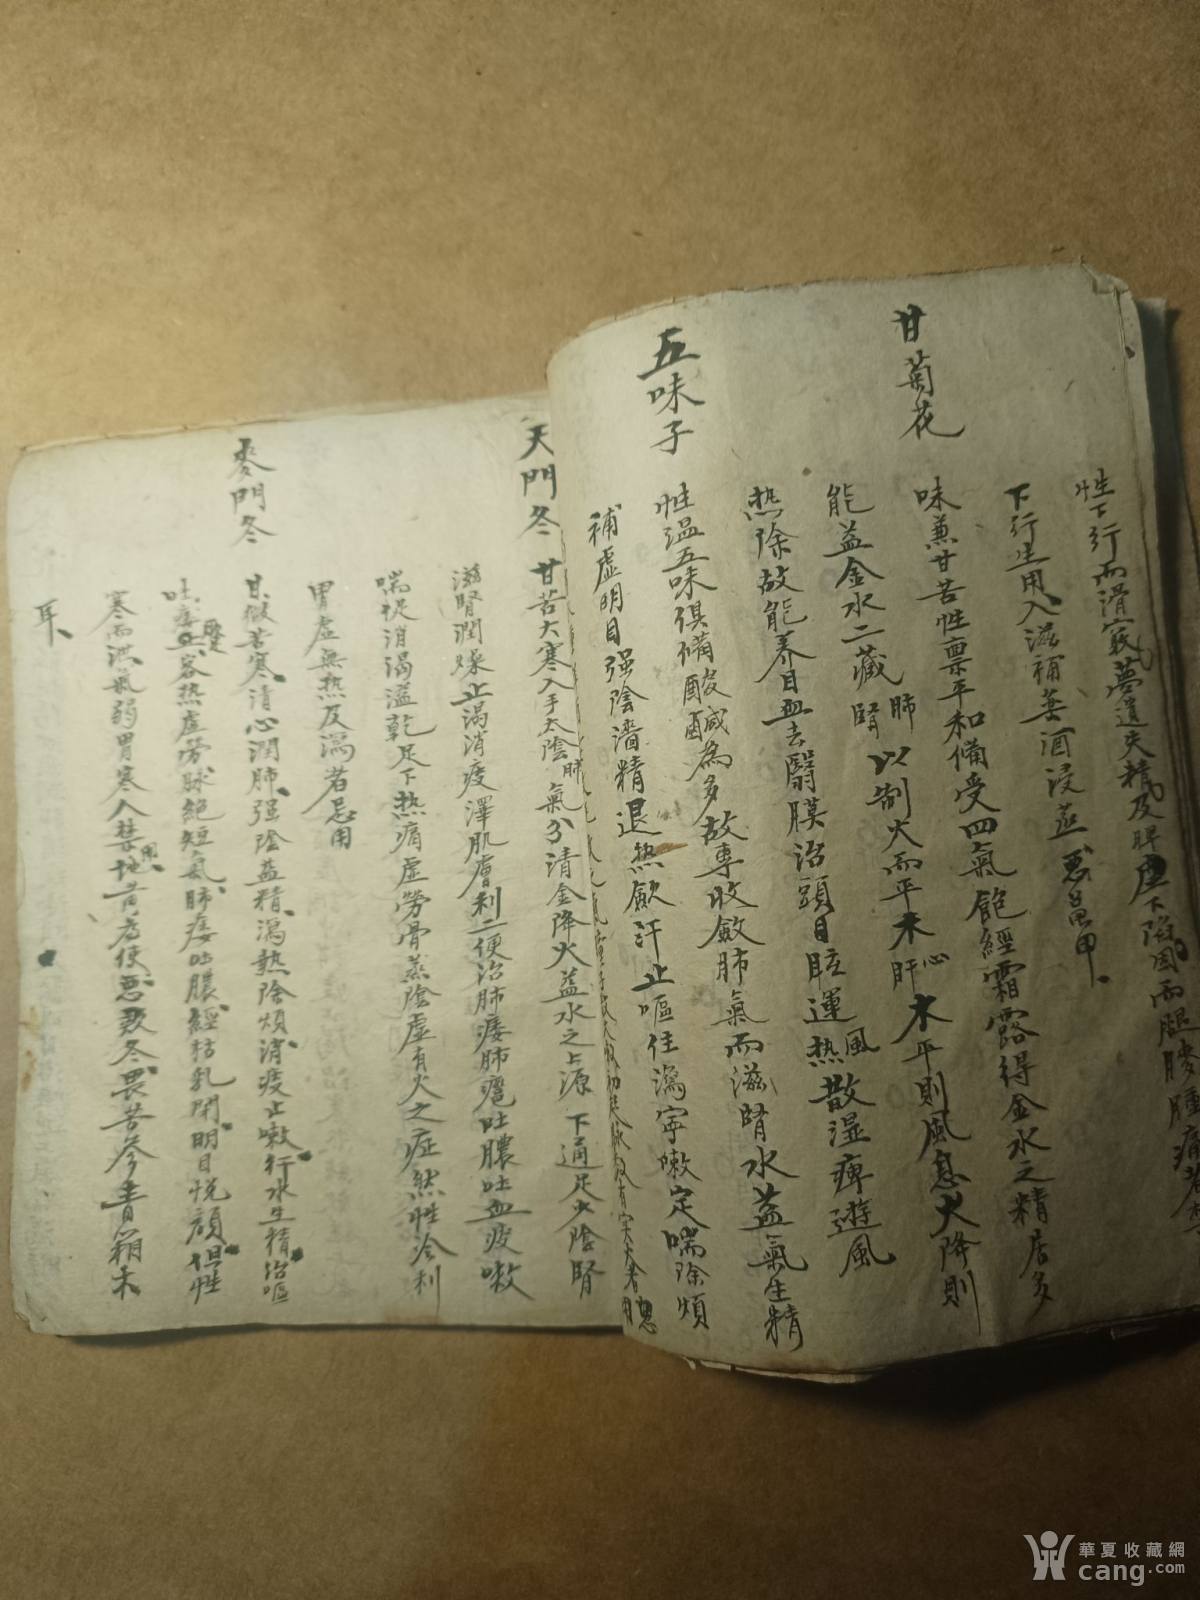 性下行而滑竅夢遺失精及脾虛下陷因而腿膝腫痛者
下行生用入滋補葯酒浸蒸惡龜甲
甘菊花
味兼甘苦性禀平和備受四氣飽經霜露得金水之精居多
能益金水二藏肺腎以制火而平木心肝木平則風息火降則
熱除故能养目血去翳膜治頭目眩運風熱散湿痺遊風
五味子
性温五味俱備酸鹹為多故專收斂肺氣而滋腎水益氣生精
補虛明目强陰濇精退热歛汗止嘔住瀉宁嗽定喘除煩
天門冬
甘苦大寒入手太陰肺氣分清金降火益水之上源下通足少陰腎
滋腎潤燥止渴消痰澤肌膚利二便治肺痿肺癰吐膿吐血痰嗽
喘促消渴溢乾足下热痛虛勞骨蒸陰虛有火之症然性冷利
胃虛無热及瀉者忌用
麥門冬
甘微苦寒清心潤肺强陰益精瀉热除煩消痰止嗽行水生精治嘔
吐痿蹷客热虛劳脉絕短氣肺痿吐膿經枯乳閉明目悅顏但性
寒而泄氣弱胃寒人禁用地黄為使惡欵冬畏苦參青箱木
耳
華夏收藏網
cang.com